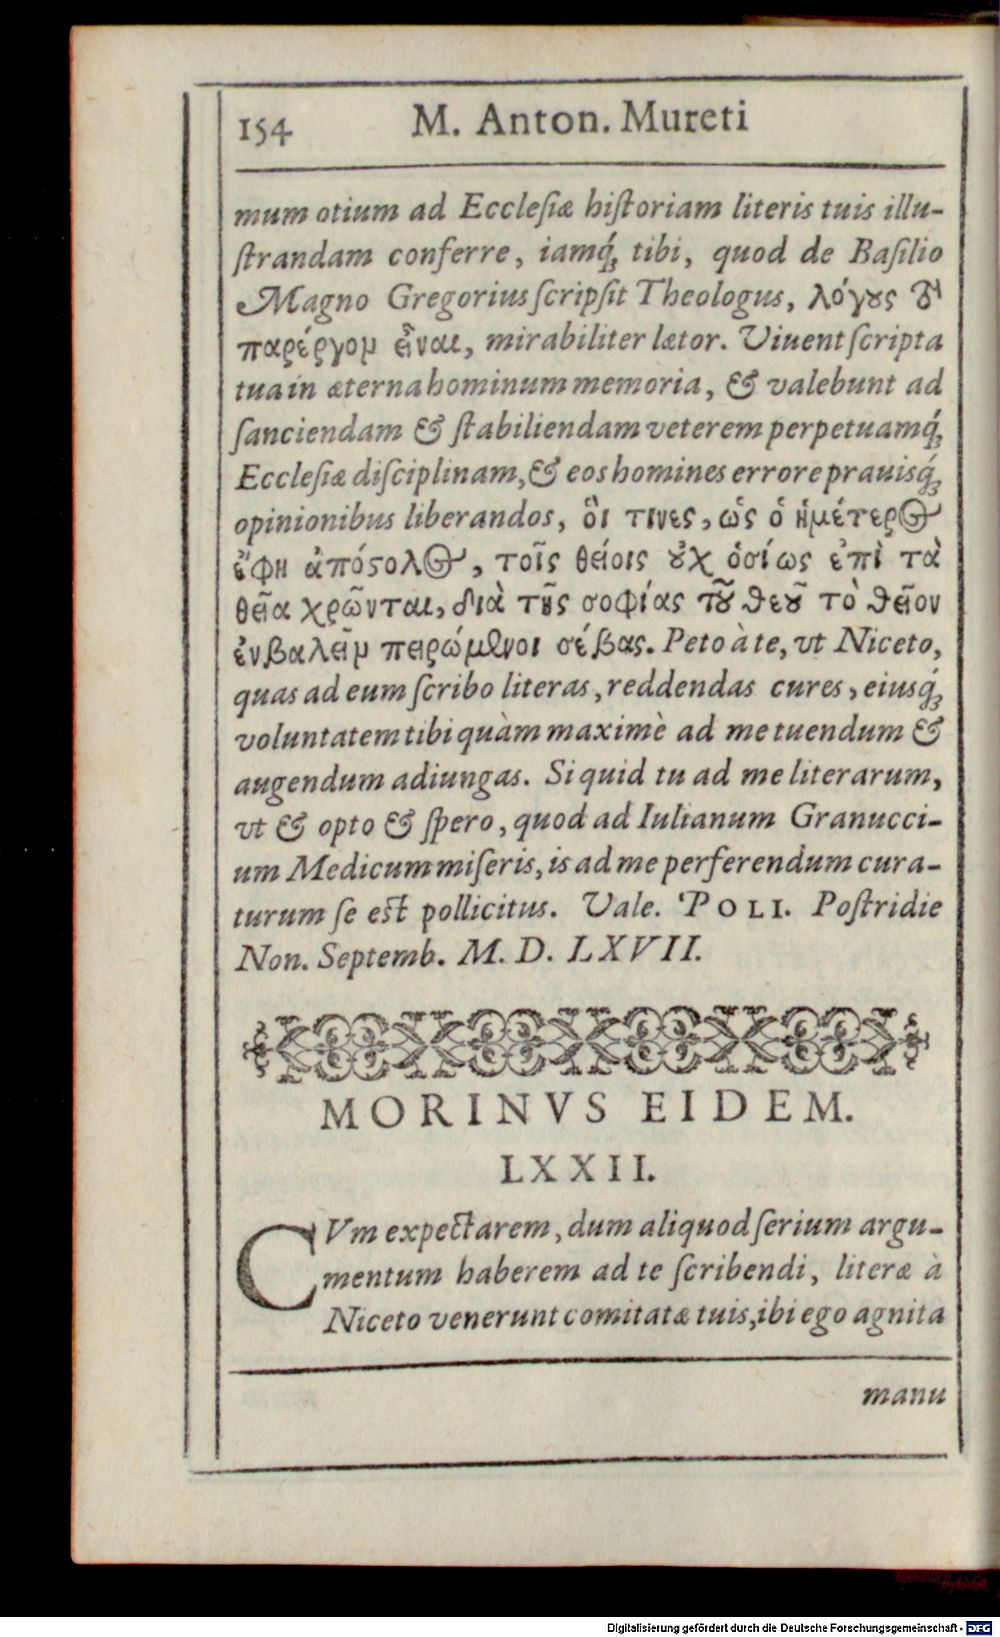 154 M. Anton. Mureti
mum otium ad Ecclesiæ historiam literis tuis illu-
strandam conferre, iamq́; tibi, quod de Basilio
Magno Gregorius scripsit Theologus, λόγȣς
παρέργομ εἶναι, mirabiliter lætor. Viuent scripta
tua in æterna hominum memoria, & valebunt ad
sanciendam & stabiliendam veterem perpetuamq́;
Ecclesiæ disciplinam, & eos homines errore prauisq́;
opinionibus liberandos, ὅι τινες, ὡς ὁ ἡμέτερος
ἔφη ἀπόςολος, τοῖς θείοις ȣχ ὁσίως ἐπὶ τὰ
θεῖα χρῶνται, διὰ τῆς σοφίας τȣ͂ θεȣ͂ τὸ θεῖον
ἐνβαλεῖμ πειρώμενοι σέβας. Peto à te, vt Niceto,
quas ad eum scribo literas, reddendas cures, eiusq́;
voluntatem tibi quàm maximè ad me tuendum &
augendum adiungas. Si quid tu ad me literarum,
vt & opto & spero, quod ad Iulianum Granucci-
um Medicum miseris, is ad me perferendum cura-
turum se est pollicitus. Vale. POLI. Postridie
Non. Septemb. M. D. LXVII.
MORINVS EIDEM.
LXXII.
CVm expectarem, dum aliquod serium argu-
mentum haberem ad te scribendi, literæ à
Niceto venerunt comitatæ tuis, ibi ego agnita
manu
Digitalisierung gefördert durch die Deutsche Forschungsgemeinschaft - DFG